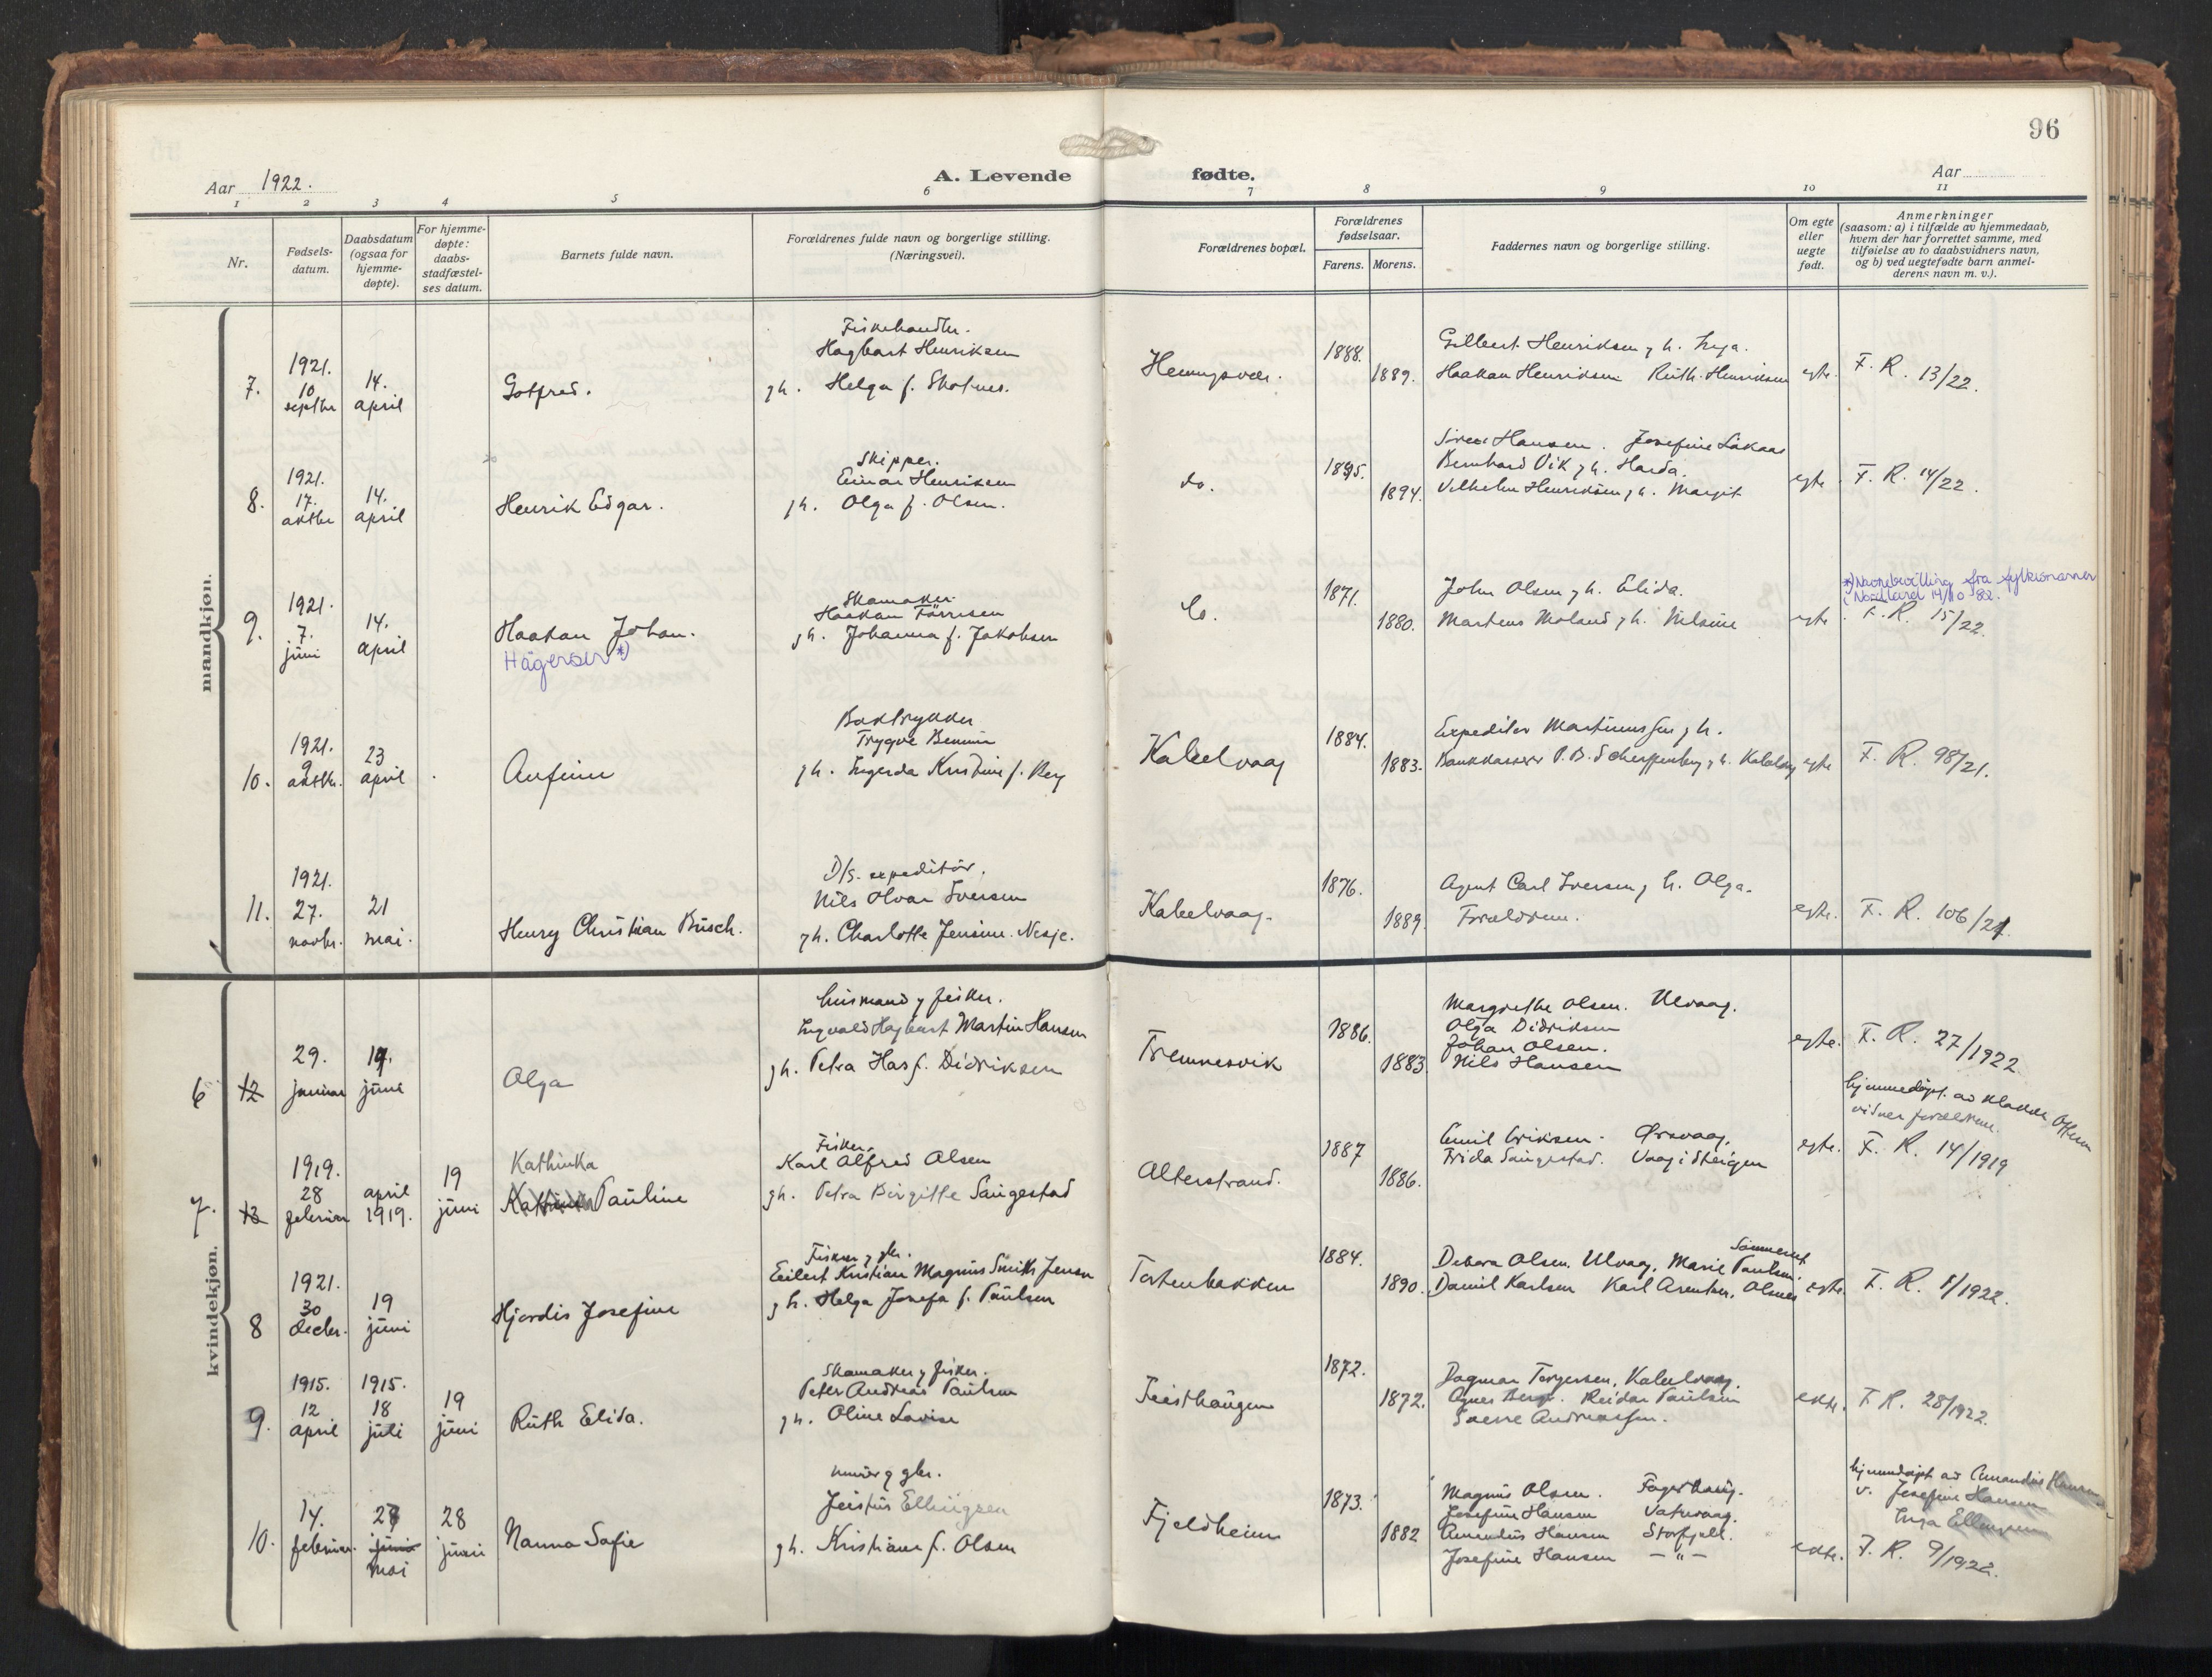 96
Aar 1922.
A. Levende fødte.
Aar
1 2 3 4 5 6 7 8 9 10 11
Nr.
Fødsels-
datum.
Daabsdatum
(ogsaa for
hjemme-
døpte).
For hjemme-
døpte:
daabs-
stadfæstel-
ses datum.
Barnets fulde navn.
Forældrenes fulde navn og borgerlige stilling.
(Næringsvei).
Forældrenes bopæl.
Forældrenes
fødselsaar.
Farens. Morens.
Faddernes navn og borgerlige stilling.
Om egte
eller
uegte
født.
Anmerkninger
(saasom: a) i tilfælde av hjemmedaab,
hvem der har forrettet samme, med
tilføielse av to daabsvidners navn,
og b) ved uegtefødte barn anmel-
derens navn m. v.).
mandkjøn.
7.
1921.
10
septbr
14.
april
Gotfred.
Fiskehandler.
Hagbart Henriksen
gh. Helga f. Skotnes.
Henningsvær.
1888.
1889.
Gilbert Henriksen gh. Inga.
Haakan Henriksen Ruth Henriksen
egte.
F. R. 13/22.
8.
1921.
17.
oktbr
14.
april
Henrik Edgar.
Skipper.
Einar Henriksen
gh. Olga f. Olsen.
do.
1895.
1894.
Hansen. Josefine
Bernhard Vik gh. Harda.
Vilhelm Henriksen gh. Margit
egte.
F. R. 14/22.
9.
1921.
7.
juni
14.
april
Haakan Johan.
Hågensen *)
Skomaker.
Haakan Tørrisen
gh. Johanna f. Jakobsen
do.
1871.
1880.
John Olsen gh. Elida.
Martens Moland gh. Nilsine
egte.
*) Navnebevilling fra fylkesmannen
i Nordland 14/10 82.
F. R. 15/22.
10.
1921.
9
oktbr.
23
april
Anfinn
Boktrykker
Trygve Bennin
gh. Ingerda Kristine f. Berg
Kabelvaag
1884.
1883.
Expeditør Martinussen gh.
Bankkasserer P. B. gh. Kabelvåg
egte
F. R. 98/21.
11.
1921.
27.
novbr.
21
mai.
Henry Christian Busch.
D/s. expeditør.
Nils Olvar Iversen
gh. Charlotte Jensine Nesje.
Kabelvaag.
1876.
1889.
Agent Carl Iversen gh. Olga.
Forældrene.
egte.
F. R. 106/21.
kvindekjøn.
6 12
29.
januar
19.
juni
Olga
husmand g fisker.
Ingvald Hagbart Martin Hansen
gh. Petra Has f. Didriksen
Tremnesvik
1886.
1883
Margrethe Olsen. Ulvaag.
Olga Didriksen
Johan Olsen.
Nils Hansen
egte.
F. R. 27/1922.
7. 13
1919.
28
februar
april
1919.
19
juni
Kathinka
Pauline
Fisker.
Karl Alfred Olsen
gh. Petra Birgitte Saugestad
Alterstrand.
1887
1886.
Emil Eriksen. Ørsvaag.
Frida Saugestad. Vaag i Steigen
egte.
hjemmedøpt. av klokker Ottem
vidner forældrene.
F. R. 14/1919
8
1921.
30
decbr.
19
juni
Hjørdis Josefine
Fisker g gbr.
Eilert Kristian Magnus Smith Jensen
gh. Helga Josefa f. Paulsen
Tortenbakken
1884.
1890.
Debora Olsen. Ulvaag. Marie Paulsen.
Daniel Karlsen Karl Arentsen, Olsnes
egte.
F. R. 8/1922.
9.
1915.
12
april
1915.
18
juli
19
juni
Ruth Elida.
Skomaker g fisker.
Peter Andreas Paulsen
gh. Oline Lovise
Teisthaugen
1872.
1872.
Dagmar Torgersen. Kabelvaag.
Agnes Berg. Reidar Paulsen
Sverre Andreassen.
egte.
F. R. 28/1922.
10.
14.
februar.
28
juni
mai
28
juni
Nanna Sofie
murer g gbr.
Justus Ellingsen
gh. Kristiane f. Olsen
Fjeldheim
1873.
1882
Magnus Olsen. Fagerhaug.
Josefine Hansen Vatervaag.
Amandus Hansen Storfjell.
Josefine Hansen — " —
egte.
hjemmedøpt av Amandus Hansen
v. Josefine Hansen
Inga Ellingsen
F. R. 9/1922.